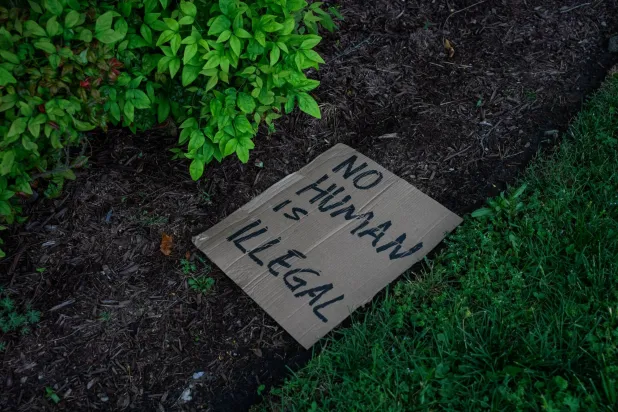 NO
HUMAN
IS
ILLEGAL